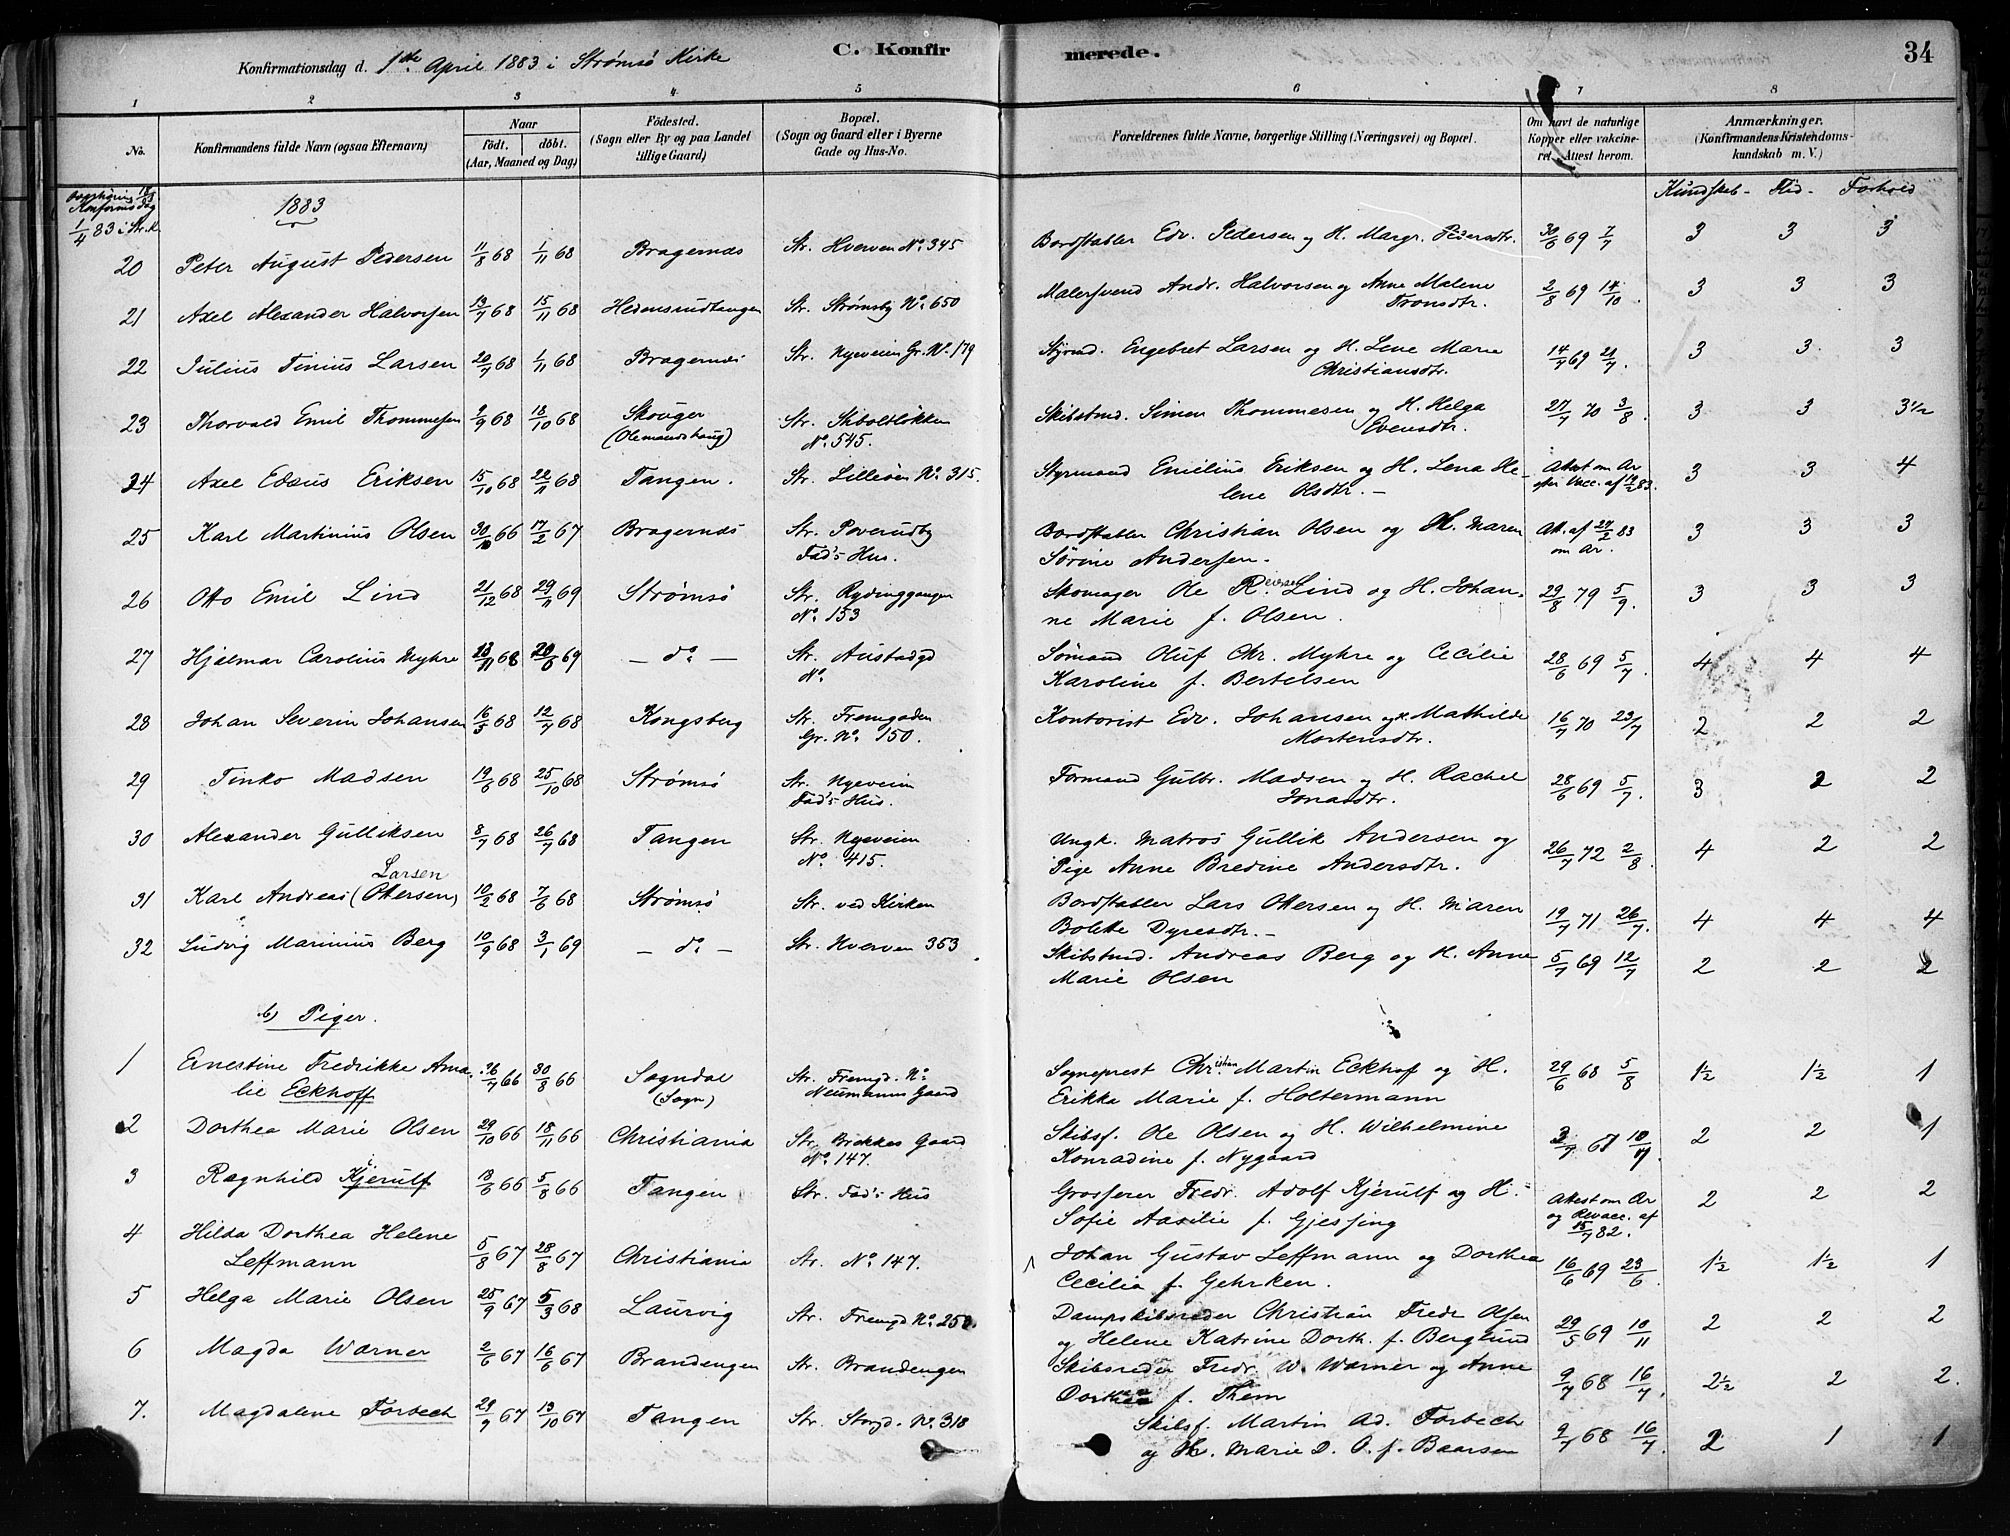 C. Konfirmerede. 34
Konfirmationsdag d. 1ste April 1883 i Strømsø Kirke
1 2 3 4 5 6 7 8
No. Konfirmandens fulde Navn (ogsaa Efternavn) Naar født. døbt. (Aar, Maaned og Dag) Fødested. (Sogn eller By og paa Landet tillige Gaard) Bopæl. (Sogn og Gaard eller i Byerne Gade og Hus-No. Forældrenes fulde Navne, borgerlige Stilling (Næringsvei) og Bopæl. Om havt de naturlige Kopper eller vakcineret. Attest herom. Anmærkninger. (Konfirmandens Kristendomskundskab m. V.)
Konfirms dag 1/4 83 i Str. K. 1883 Kundskab - Flid - Forhold
20 Peter August Pedersen 11/8 68 1/11 68 Bragernæs Str. Hverven No. 345 Bordstabler Edv. Pedersen og H. Margr. Pedersdtr. 30/6 69 7/7 3 3 3
21 Axel Alexander Halvorsen 13/7 68 15/11 68 Hedensrudtangen Str. Strømsby No. 650 Malersvend Andr. Halvorsen og Anne Malene
Tronsdtr. 2/8 69 14/10. 3 3 3
22 Julius Tinius Larsen 20/7 68 1/11 68 Bragernæs Str. Nyeveien Gr. No. 179 Styrmd. Engebret Larsen og H. Lene Marie
Christiansdtr. 14/7 69 21/7. 3 3 3
23 Thorvald Emil Thommesen 2/9 68 18/10 68 Skouger
(Olemandshaug) Str. Skiboltløkken
No. 545. Skibstmd. Simen Thommesen og H. Helga
Evensdtr. 27/7 70 3/8. 3 3 3½
24 Axel Edæus Eriksen 15/10 68 22/11 68 Tangen. Str. Lilleøen No. 315. Styrmand Emilius Eriksen og H. Lena He-
lene Olsdtr. - Attest om Ar
efter Vacc. af 83. 3 3 4
25 Karl Martinius Olsen 30/10 66 17/2 67 Bragernæs Str. Poverudby
Fad's Hus. Bordstabler Christian Olsen og H. Maren
Sørine Andersen. Att. af 27/2 83
om Ar. 3 3 3
26 Otto Emil Lind 21/12 68 29/11 69 Strømsø Str. Rydinggangen
No. 153 Skomager Ole R. Lind og H. Johan-
ne Marie f. Olsen. 29/8 79 5/9. 3 3 3
27 Hjalmar Carolius Myhre 68 20/6 69 - do. - Str. Austadgd
No. Sømand Oluf Chr. Myhre og Cecilie
Karoline f. Bertelsen 28/6 69 5/7. 4 4 4
28 Johan Severin Johansen 16/5 68 12/7 68 Kongsberg Str. Fremgaden
Gr. No. 150. Kontorist Edv. Johansen og H. Mathilde
Mortensdtr. 16/7 70 23/7 2 2 2
29 Tinko Madsen 19/6 68 25/10 68 Strømsø Str. Nyeveien
Fad's Hus. Formand Gulbr. Madsen og H. Rachel
Jonasdtr. 28/6 69 5/7. 3 2 2
30 Alexander Gulliksen 8/7 68 26/7 68 Tangen Str. Nyeveien
No. 415. Ungk. Matros Gullik Andersen og
Pige Anne Bredine Andersdtr. 26/7 72 2/8. 4 2 2
31 Karl Andreas (Ottersen) Larsen 10/2 68 7/6 68 Strømsø Str. ved Kirken Bordstabler Lars Ottersen og H. Maren
Bolette Dyresdtr. - 19/7 71 26/7. 4 4 4
32 Ludvig Marinius Berg 10/9 68 3/1 69 - do. - Str. Hverven 353 Skibstmd. Andreas Berg og H. Anne
Marie Olsen 5/7 69 12/7 2 2 2
b) Piger.
1 Ernestine Fredrikke Ama-
lie Eckhoff 26/7 66 30/8 66 Sogndal
(Sogn) Str. Fremgd. No.
Neumanns Gaard Sogneprest Christian Martin Eckhof og H.
Erikka Marie f. Holtermann 29/6 68 5/8 1½ 1½ 1
2 Dorthea Marie Olsen 29/10 66 18/11 66 Christiania Str. Brekkes Gaard
No. 147. Skibsf. Ole Olsen og H. Wilhelmine
Konradine f. Nygaard 3/7 67 10/7. 2 2 1
3 Ragnhild Kjerulf 13/6 66 5/8 66 Tangen Str. Fad's Hus Grosserer Fredr. Adolf Kjerulf og H.
Sofie Aasilie f. Gjessing Attest om Ar
og Revacc. af
15/7 82. 2 2 2
4 Hilda Dorthea Helene
Leffmann 5/8 67 28/8 67 Christiania Str. No. 147. Johan Gustav Leffmann og Dorthea
Cecilia f. Gehrken. 16/6 69 23/6. 1½ 1½ 1
5 Helga Marie Olsen 25/9 67 5/3 68 Laurvig Str. Fremgd No. 250. Dampskibsreder Christian Fredr Olsen
og Helene Katrine Dorth. f. Berglund 29/5 69 10/11 2 2 2
6 Magda Warner 2/6 67 16/6 67 Brandengen Str. Brandengen Skibsreder Fredr. W. Warner og Anne
Dorthea f. Them 9/7 68 16/7. 2½ 2 2.
7. Magdalene Forbech 29/9 67 13/10 67 Tangen Str. Storgd. No. 318 Skibsf. Martin Ad. Forbech
og Marie D. O. f. Baarsen 9/7 68 16/7. 2 1 1